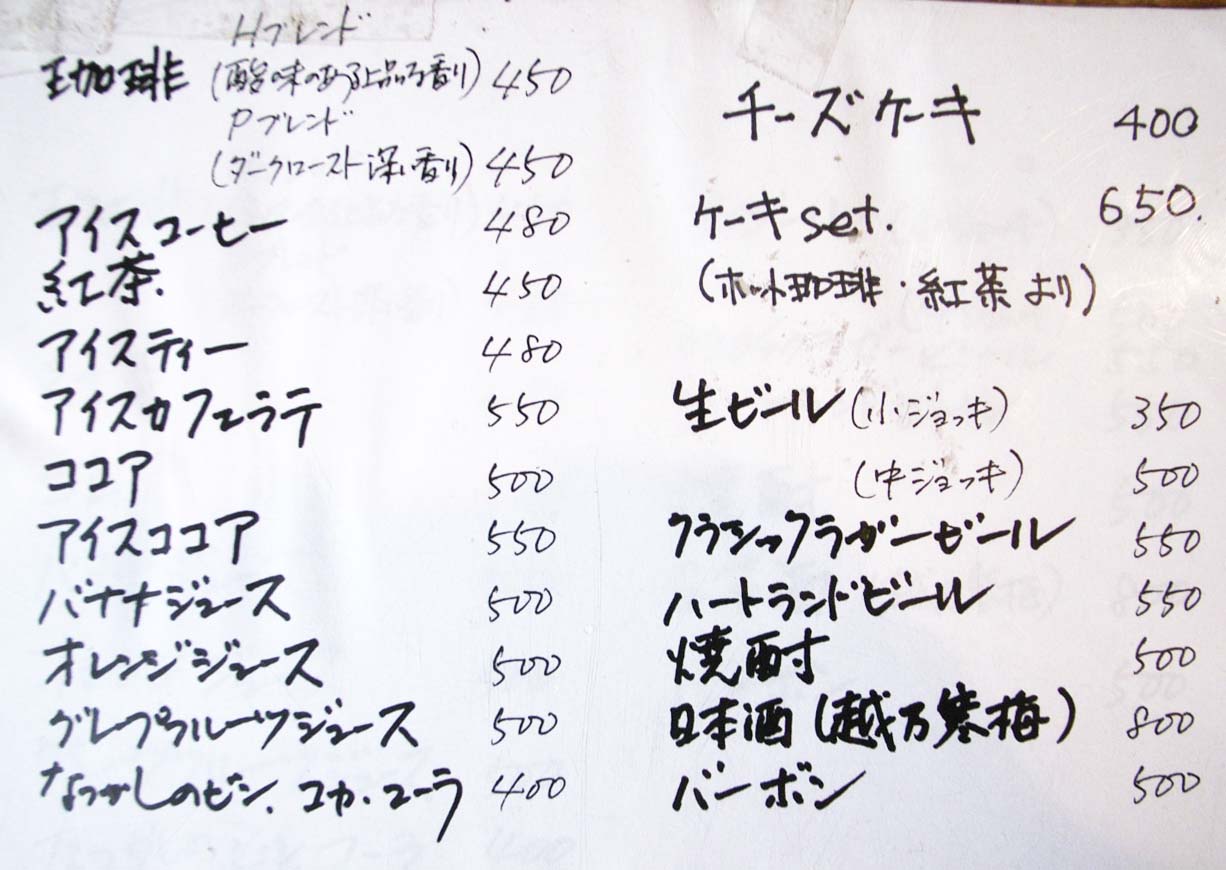 Hブレンド
珈琲 (酸味のある上品な香り) 450
Pブレンド
(ダークロースト深い香り) 450
アイスコーヒー 480
紅茶. 450
アイスティー 480
アイスカフェラテ 550
ココア 500
アイスココア 550
バナナジュース 500
オレンジジュース 500
グレープフルーツジュース 500
なつかしのビン.コカ・コーラ 400
チーズケーキ 400
ケーキset. 650.
(ホット珈琲・紅茶より)
生ビール(小ジョッキ) 350
(中ジョッキ) 500
クラシックラガービール 550
ハートランドビール 550
焼酎 500
日本酒(越乃寒梅) 800
バーボン 500